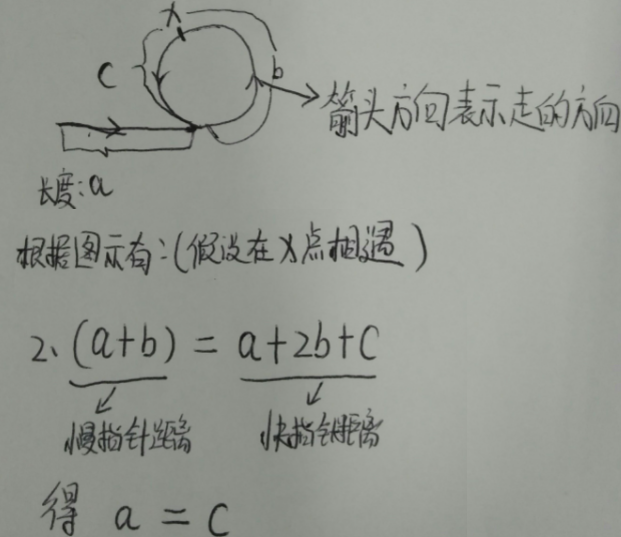 x
c
b
箭头方向表示走的方向
长度:a
根据图示有:(假设在X点相遇)
2、(a+b) = a+2b+C
慢指针距离 快指针距离
得 a = c